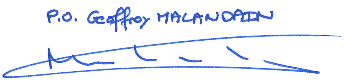 P.O. Geoffroy MALANDAIN